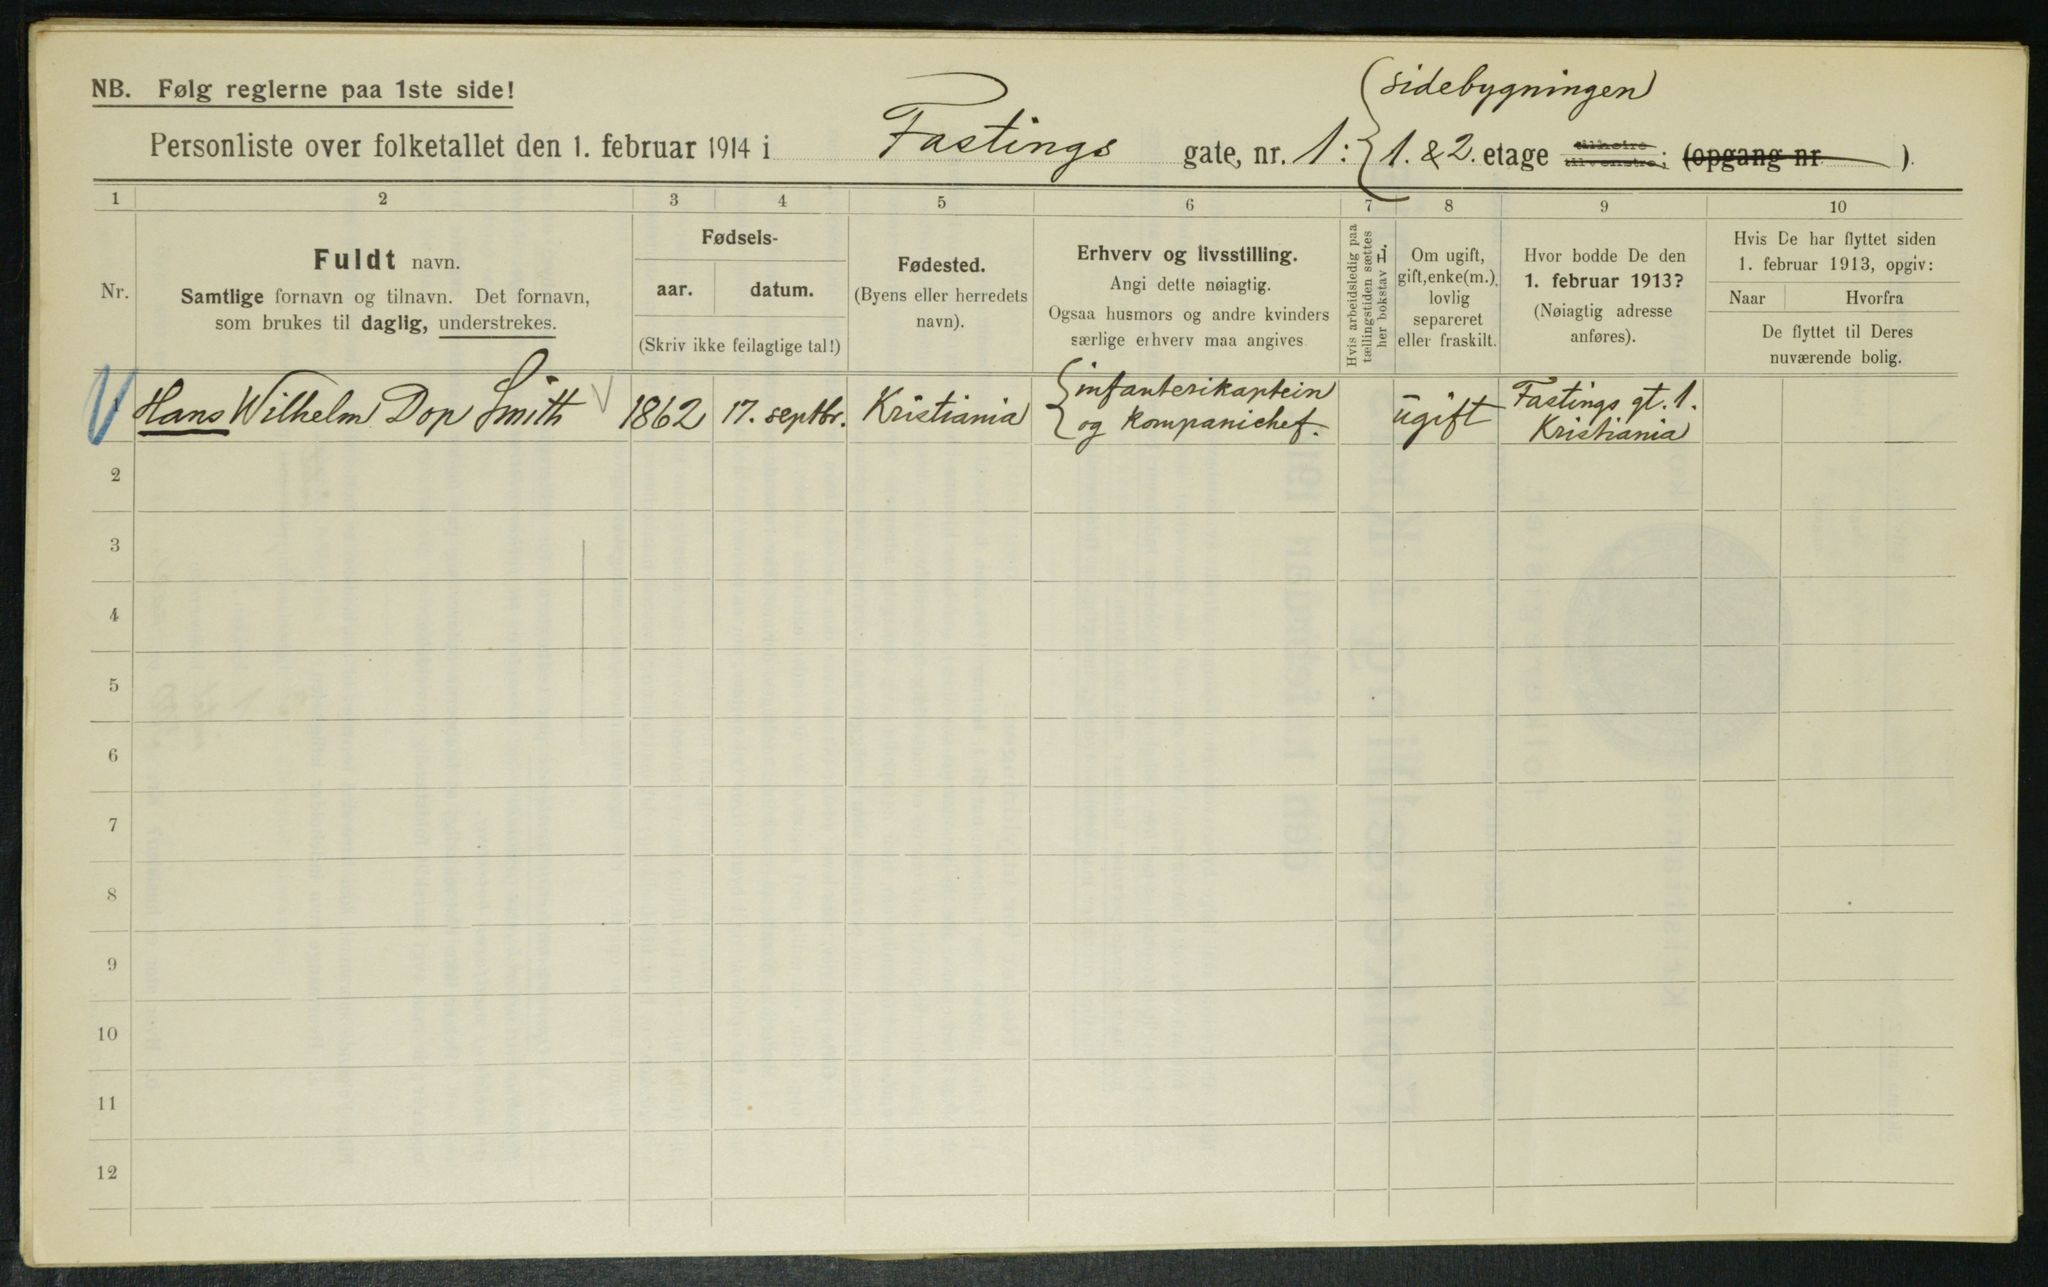 NB. Følg reglerne paa 1ste side!
Personliste over folketallet den 1. februar 1914 i Fastings gate, nr. 1: { sidebygningen
1. & 2. etage tilhøire tilvenstre; (opgang nr. ).
1 2 3 4 5 6 7 8 9 10
Nr.
Fuldt navn.
Samtlige fornavn og tilnavn. Det fornavn,
som brukes til daglig, understrekes.
Fødsels-
aar. datum.
(Skriv ikke feilagtige tal!)
Fødested.
(Byens eller herredets
navn).
Erhverv og livsstilling.
Angi dette nøiagtig.
Ogsaa husmors og andre kvinders
særlige erhverv maa angives
Hvis arbeidsledig paa
tællingstiden sættes
her bokstav L.
Om ugift,
gift, enke(m.),
lovlig
separeret
eller fraskilt.
Hvor bodde De den
1. februar 1913?
(Nøiagtig adresse
anføres).
Hvis De har flyttet siden
1. februar 1913, opgiv:
Naar Hvorfra
De flyttet til Deres
nuværende bolig.
1 Hans Wilhelm Dop Smith 1862 17. septbr. Kristiania { infanterikaptein
og kompanichef. ugift Fastings gt. 1.
Kristiania
2
3
4
5
6
7
8
9
10
11
12